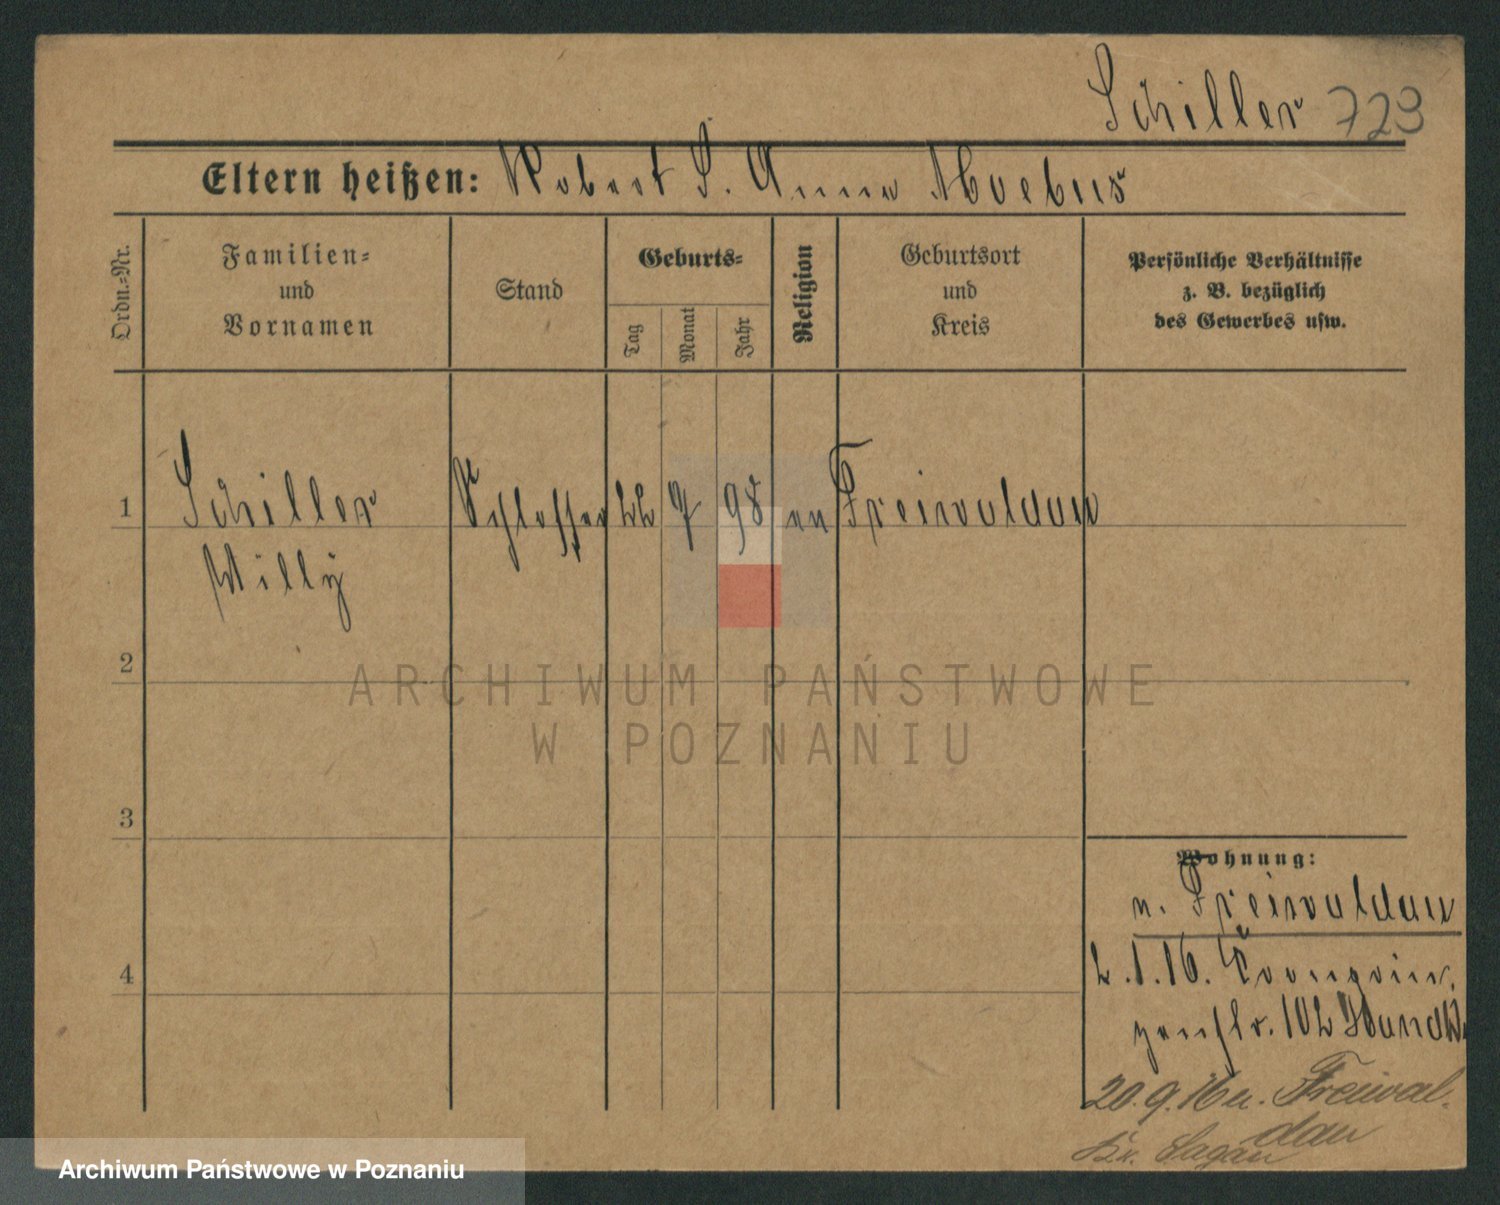 Schiller 723
Eltern heißen: Robert S. Anna Moebus
Ordn.-Nr.
Familien-
und
Vornamen
Stand
Geburts-
Tag
Monat
Jahr
Religion
Geburtsort
und
Kreis
Persönliche Verhältnisse
z. B. bezüglich
des Gewerbes usw.
1 Schiller Schlosser 22 9 98 ev Freiwaldau
Willy
2
3
4
Wohnung:
n. Freiwaldau
2.1.16. Kronprin-
zenstr. 102
20.9.16 n. Freiwal-
dau
Kr. Sagan
ARCHIWUM PAŃSTWOWE
W POZNANIU
Archiwum Państwowe w Poznaniu